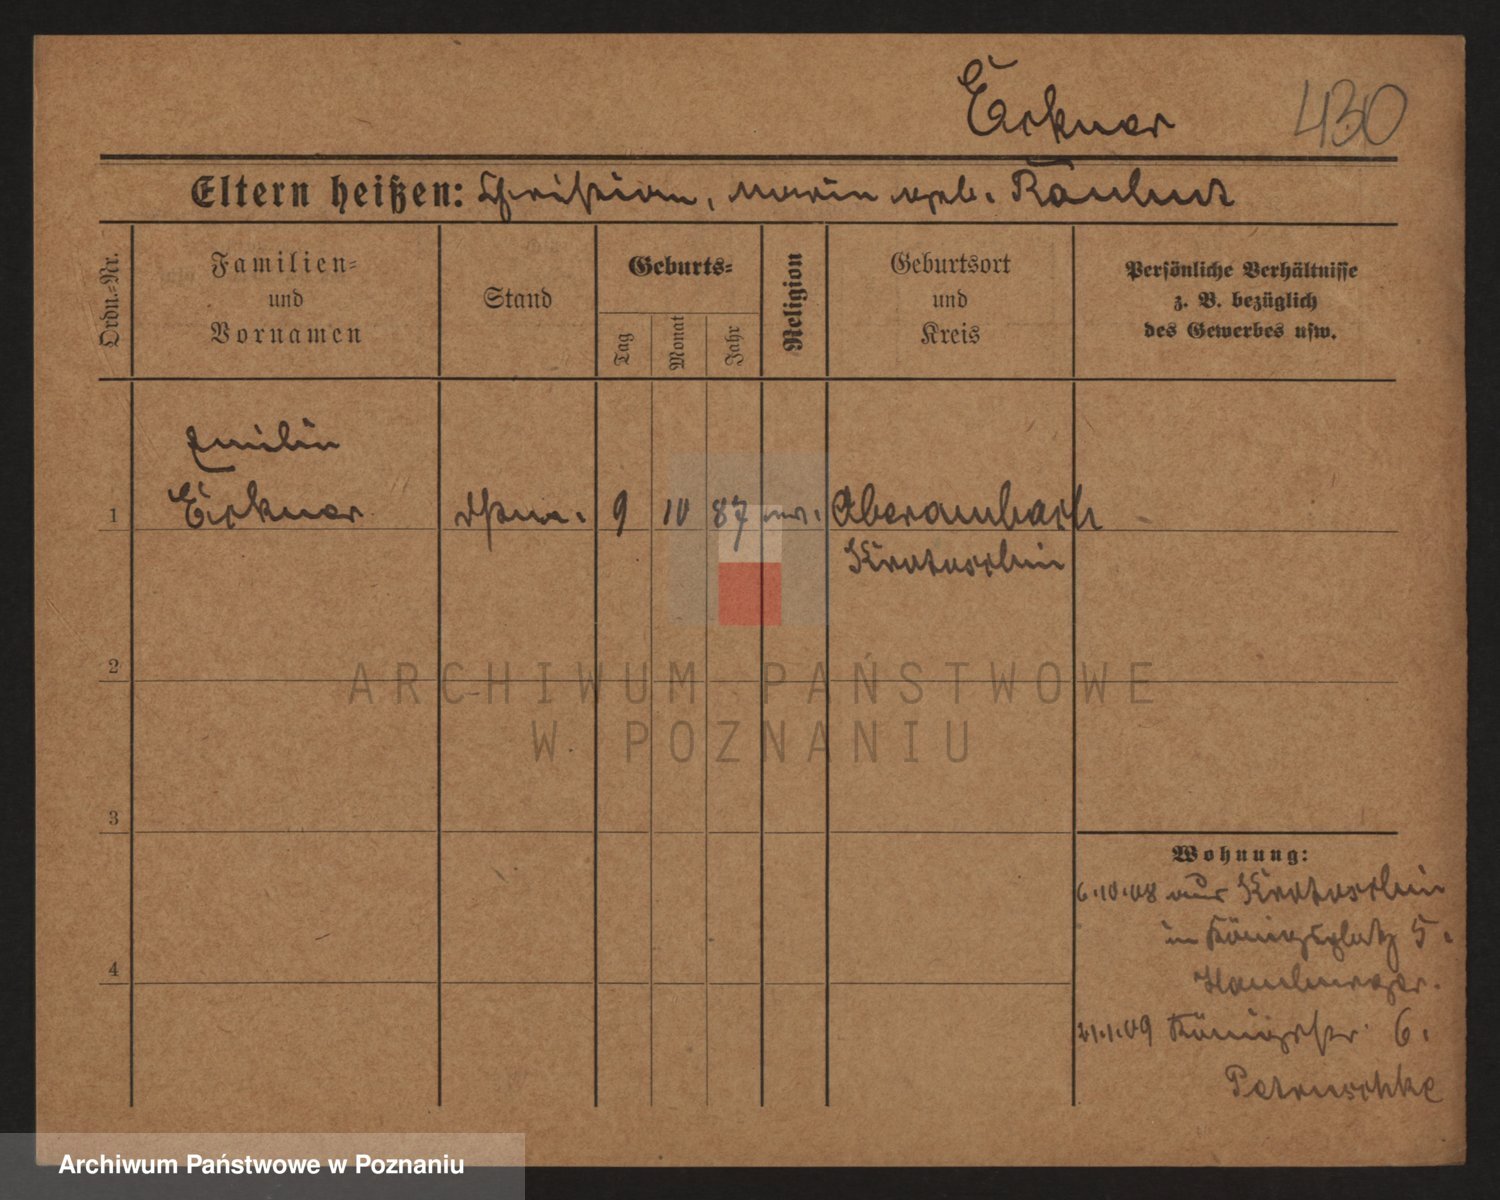 Eickner 430
Eltern heißen: Christian, Marie geb. Räuber
Ordn.-Nr.
Familien=
und
Vornamen
Stand
Geburts=
Tag
Monat
Jahr
Religion
Geburtsort
und
Kreis
Persönliche Verhältnisse
z. B. bezüglich
des Gewerbes usw.
Emilie
1 Eickner 9 10 87 Oberambach
Krotoschin
2
3
4
Wohnung:
6.10.08 aus Krotoschin
in Königsplatz 5.
21.1.09 Königstr. 6.
Petruschke
ARCHIWUM PAŃSTWOWE
W POZNANIU
Archiwum Państwowe w Poznaniu